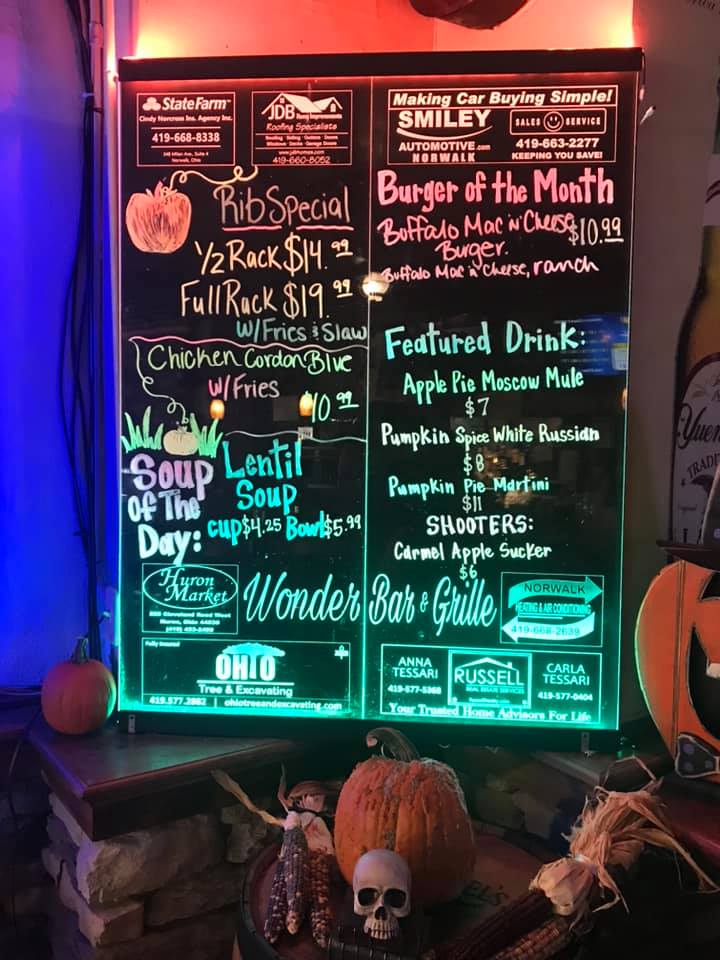 StateFarm™
Cindy Norcross Ins. Agency Inc.
419-668-8338
348 Milan Ave., Suite 4
Norwalk, Ohio
JDB Home Improvements
Roofing Specialists
Roofing · Siding · Gutters · Doors
Windows · Decks · Garage Doors
www.jdbhomes.com
419-660-8052
Making Car Buying Simple!
SMILEY
AUTOMOTIVE.com
NORWALK
SALES SERVICE
419-663-2277
KEEPING YOU SAVE!
Rib Special
1/2 Rack $14.99
Full Rack $19.99
w/Fries & Slaw
Chicken Cordon Blue
w/Fries
$10.99
Soup
Of The
Day:
Lentil
Soup
cup $4.25 Bowl $5.99
Burger of the Month
Buffalo Mac 'n' Cheese $10.99
Burger.
Buffalo Mac 'n' Cheese, ranch
Featured Drink:
Apple Pie Moscow Mule
$7
Pumpkin Spice White Russian
$8
Pumpkin Pie Martini
$11
SHOOTERS:
Carmel Apple Sucker
$6
Huron
Market
Huron, Ohio 44839
Wonder Bar & Grille
NORWALK
HEATING & AIR CONDITIONING
419-668-2639
Fully Insured
OHIO
Tree & Excavating
419.577.2882 | ohiotreeandexcavating.com
ANNA
TESSARI
419-577-5368
RUSSELL
REAL ESTATE SERVICES
CARLA
TESSARI
419-577-0404
Your Trusted Home Advisors For Life
Yuen
TRADI